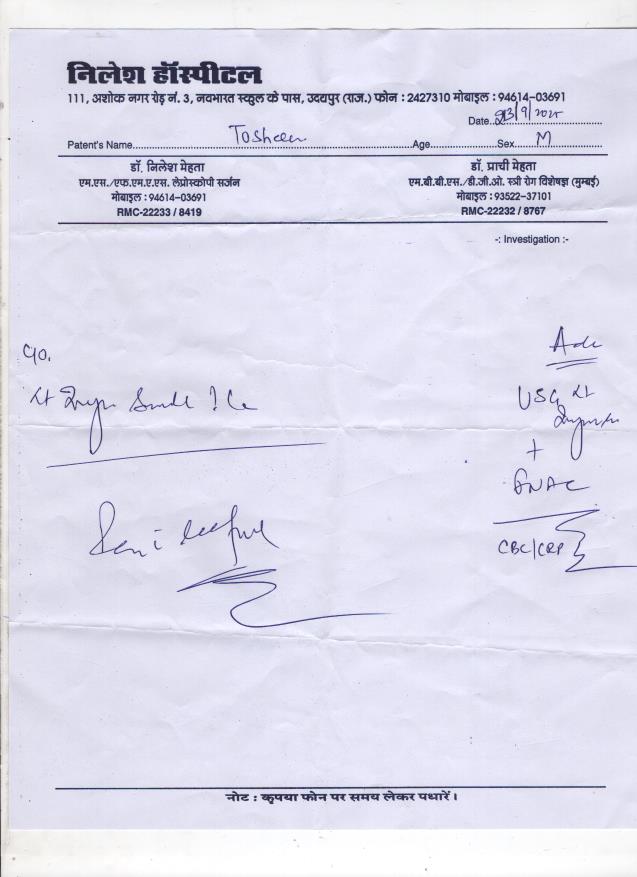 निलेश हॉस्पीटल
111, अशोक नगर रोड़ नं. 3, नवभारत स्कुल के पास, उदयपुर (राज.) फोन : 2427310 मोबाइल : 94614-03691
Date. /9/2025
Patent's Name Tosheen Age Sex M
डॉ. निलेश मेहता
एम.एस./एफ.एम.ए.एस. लेप्रोस्कोपी सर्जन
मोबाइल : 94614-03691
RMC-22233 / 8419
डॉ. प्राची मेहता
एम.बी.बी.एस./डी.जी.ओ. स्त्री रोग विशेषज्ञ (मुम्बई)
मोबाइल : 93522-37101
RMC-22232 / 8767
-: Investigation :-
C/O.
Adv
USG
+
FNAC
CBC/CRP
नोट : कृपया फोन पर समय लेकर पधारें।